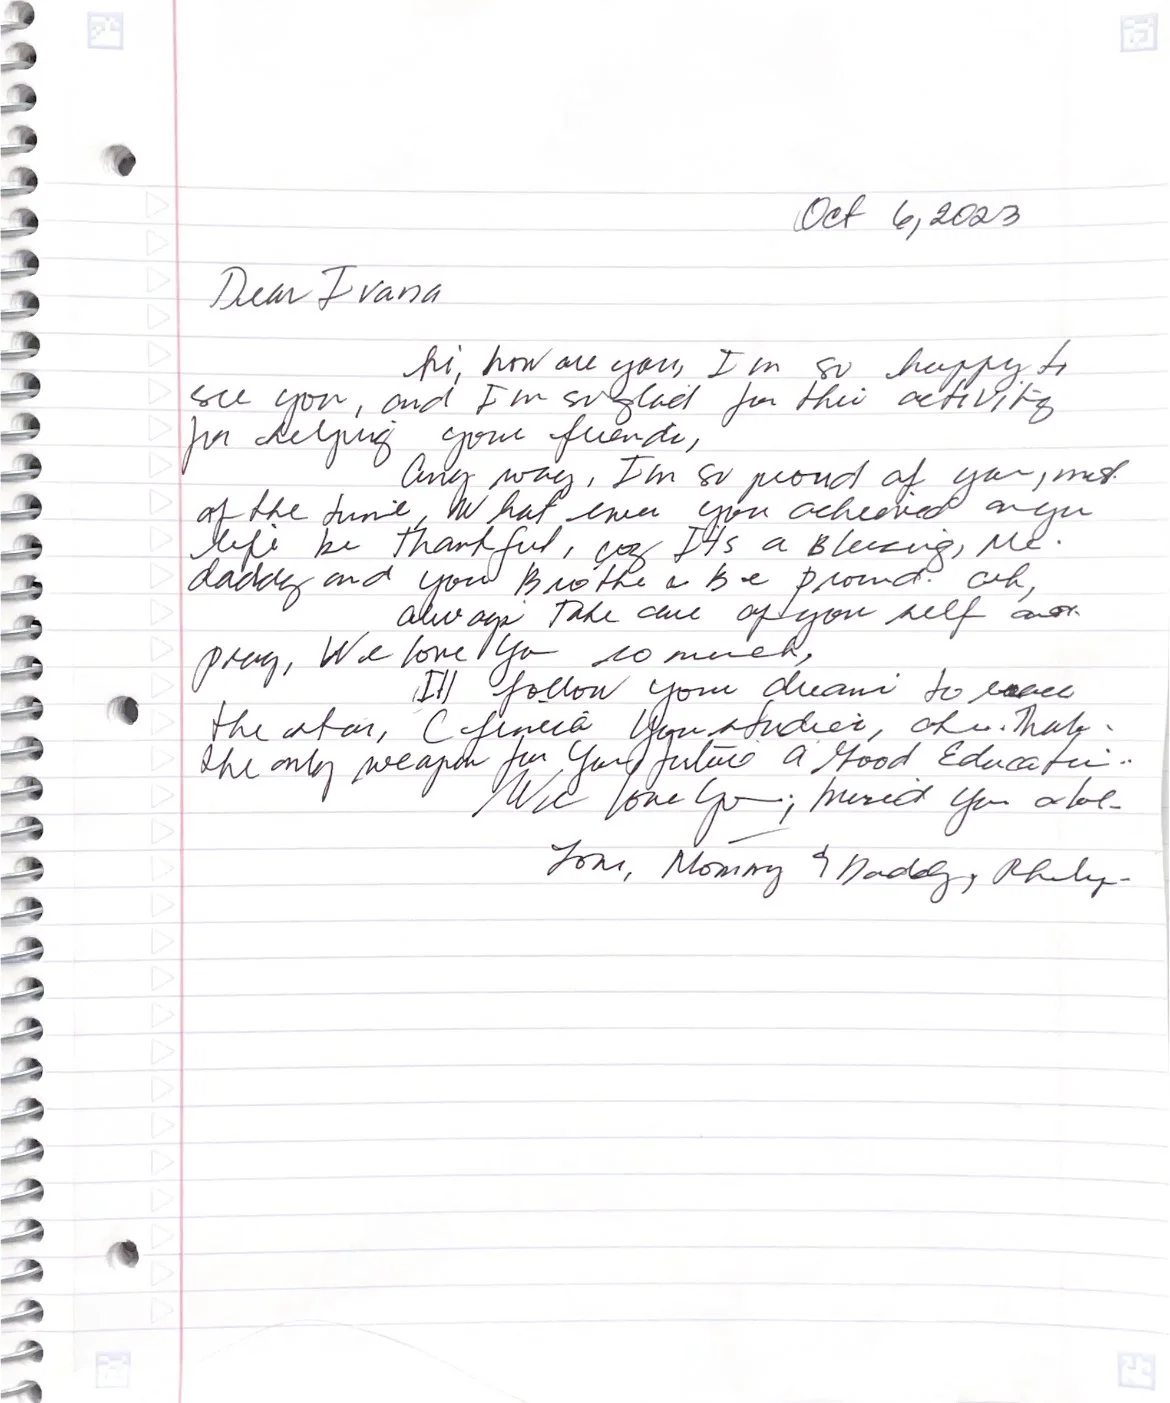 Oct 6, 2023
Dear Ivana
hi, how are you, I'm so happy to
see you, and I'm so glad for this activity
for helping your friends,
Any way, I'm so proud of you, most
of the time, What ever you achieved on you
life be thankful, coz It's a Blessing, Me.
daddy and you Brother a Be proud.
always Take care of your self and
pray, We love You so much,
I'll follow your dreams to reach
the star, Your studies, Thats
the only weapon for Your future a Good Education.
We love You, missed you a lot
Love, Mommy & Daddy,